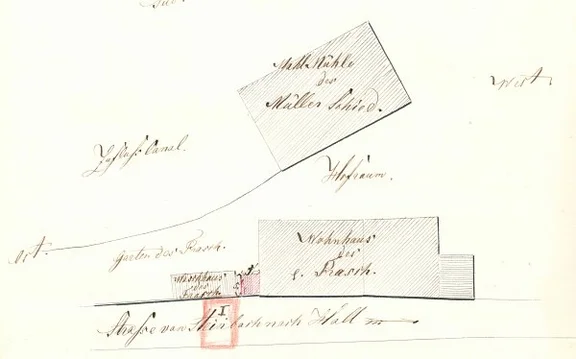 Mahl Mühle
des
Müller Schied.
West
Zufluss Canal.
Hofraum.
Ost.
Garten des Prasch.
Wohnhaus
des
Prasch.
Waschhaus
des
Prasch
I
Strasse von nach Hall